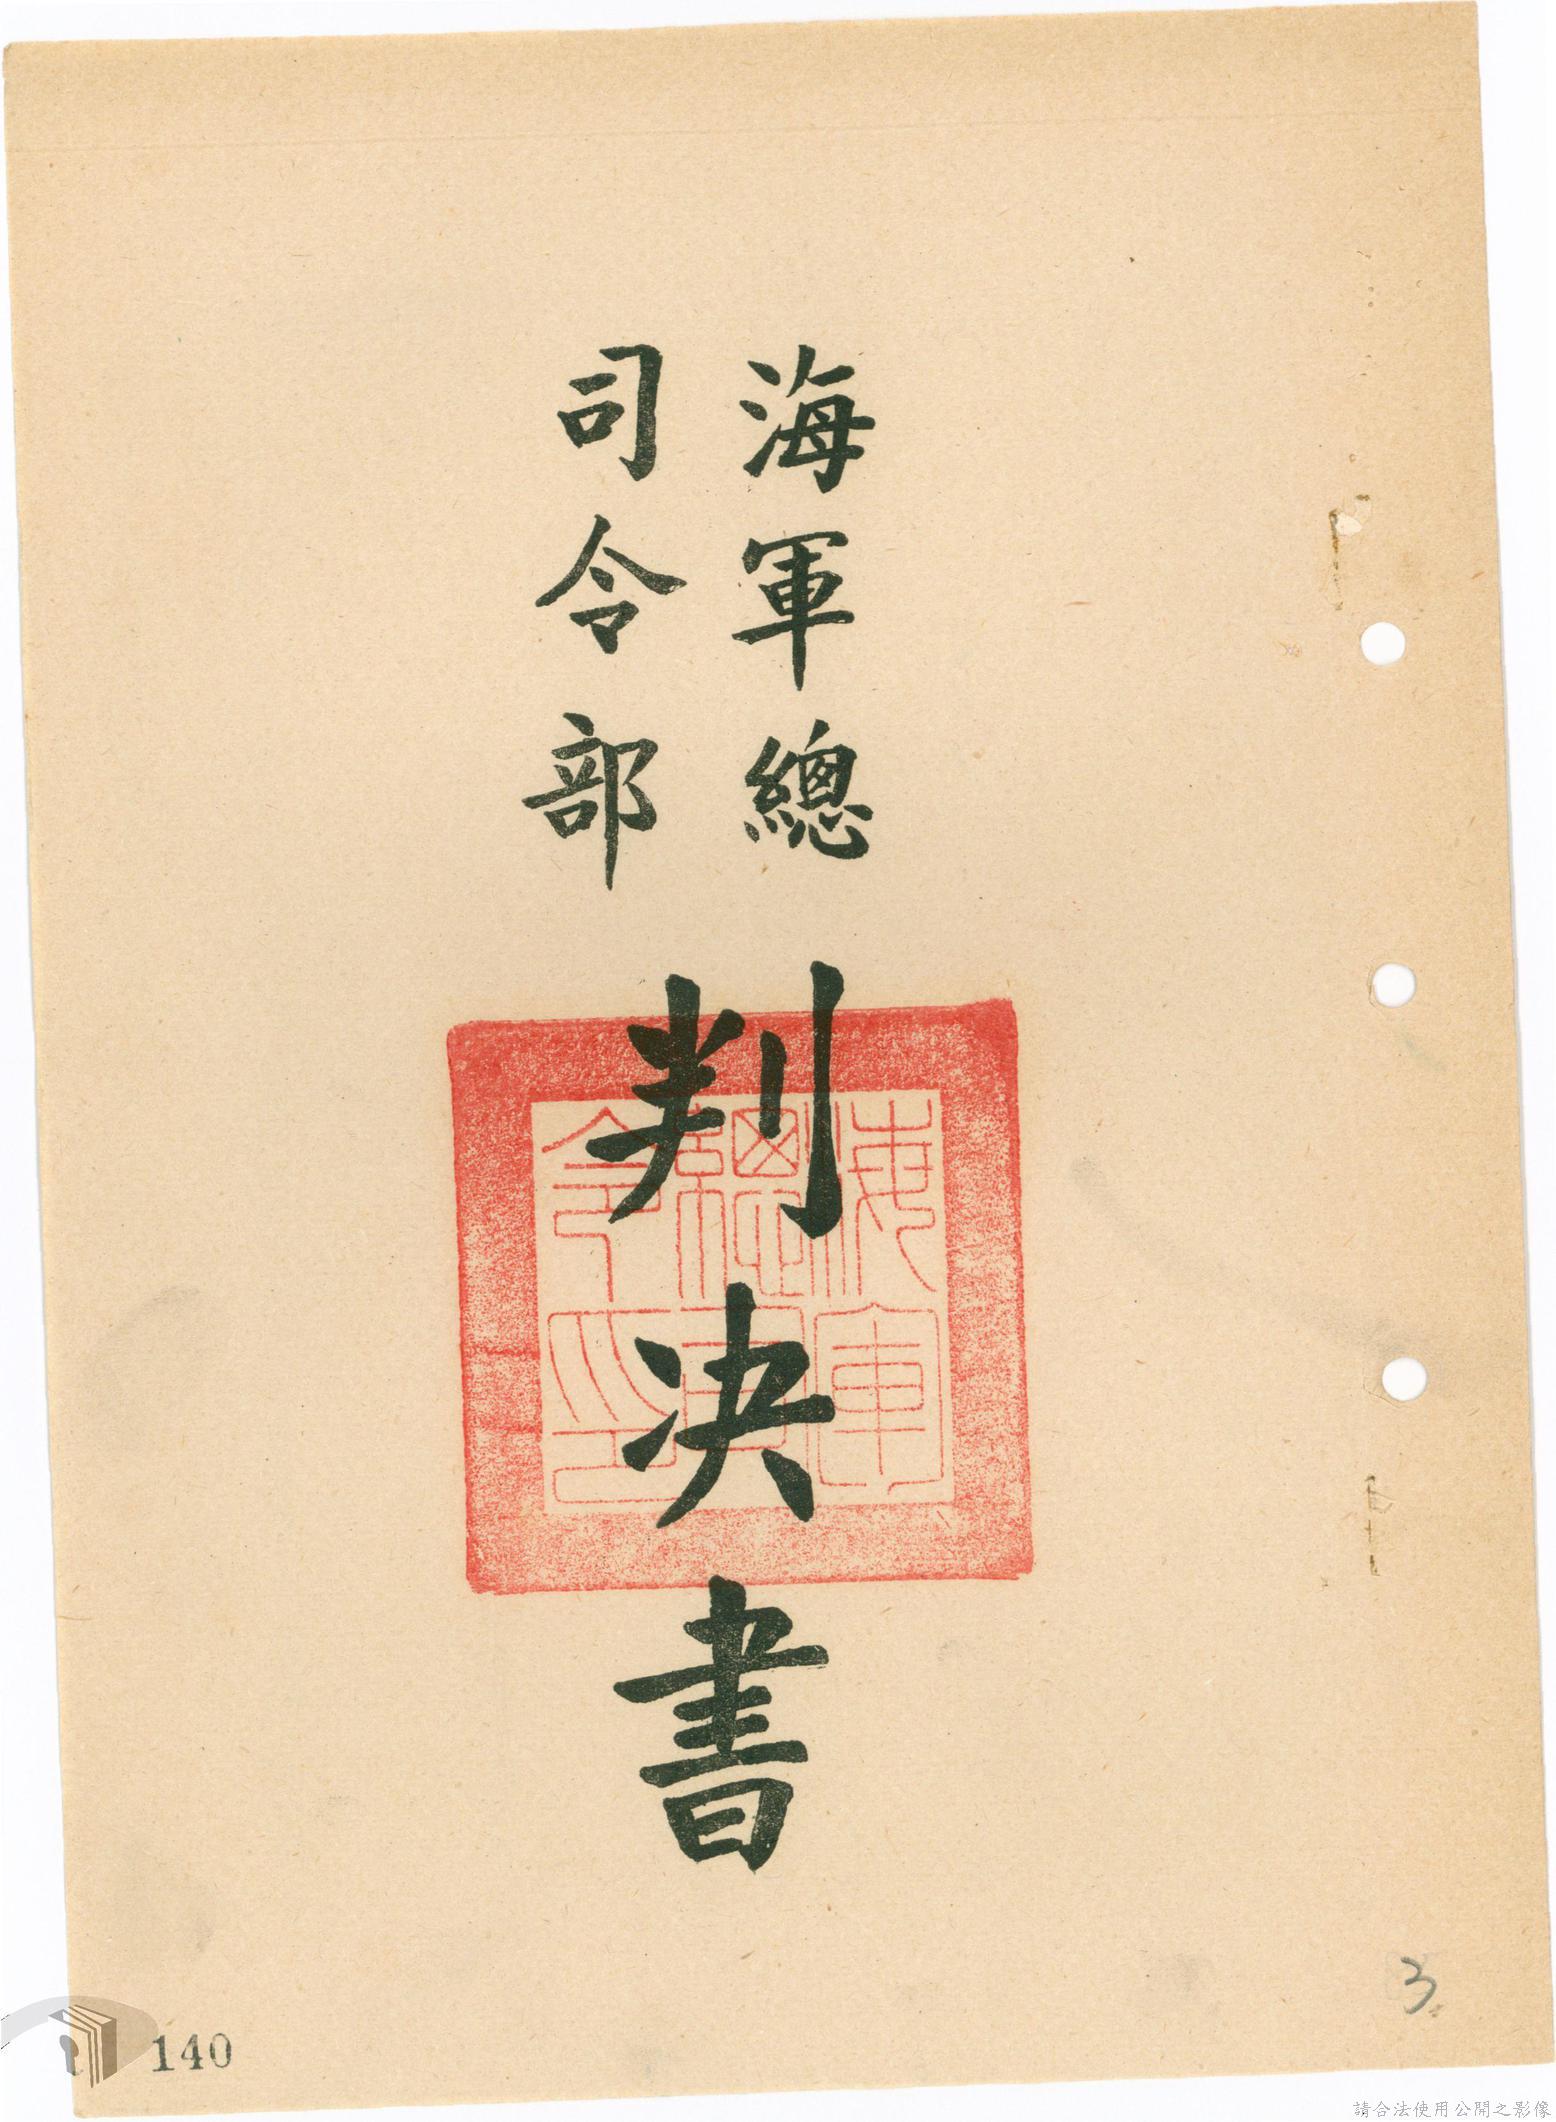 海軍總
司令部
判決書
海軍
總司
令印
3
140
請合法使用公開之影像